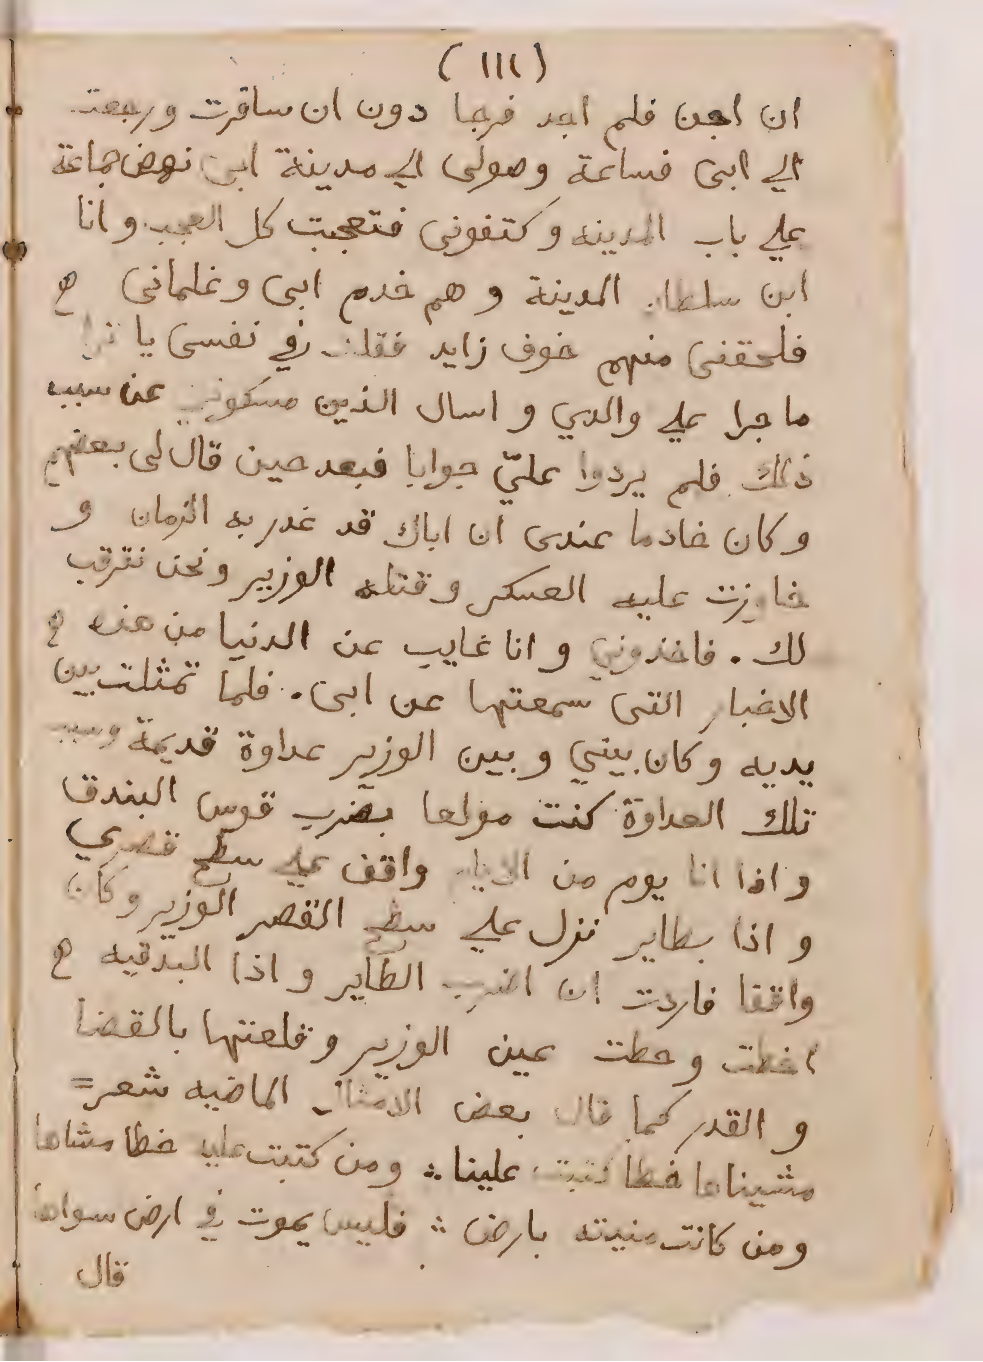 (١١١)
ان اجن فلم اجد فرجا دون ان سافرت ورجعت
الي ابى فساعة وصولى الى مدينة ابى نهض جماعة
علي باب المدينه وكتفونى فتعجبت كل العجب وانا
ابن سلطان المدينة و هم خدم ابى وغلمانى
فلحقنى منهم خوف زايد فقلت في نفسى يا ترا
ما جرا علي والدي و اسال الذين مسكونى عن سبب
ذلك فلم يردوا عليّ جوابا فبعد حين قال لى بعضهم
وكان خادما عندى ان اباك قد غدر به الزمان و
خاوزت عليه العسكر وقتله الوزير ونحن نترقب
لك . فاخذوني و انا غايب عن الدنيا من هذه
الاخبار التى سمعتها عن ابى . فلما تمثلت بين
يديه وكان بيني و بين الوزير عداوة قديمة وسبب
تلك العداوة كنت مولعا بضرب قوس البندق
و اذا انا يوم من الايام واقف علي سطح قصري
و اذا بطاير نزل علي سطح القصر الوزير وكان
واقفا فاردت ان اضرب الطاير و اذا البدقيه
اخطت وحطت عين الوزير وقلعتها بالقضا
و القدر كما قال بعض الامثال الماضيه شعر=
مشيناها خطا كتبت علينا ؞ ومن كتبت عليه خطا مشاها
ومن كانت منيته بارض ؞ فليس يموت في ارض سواها
قال